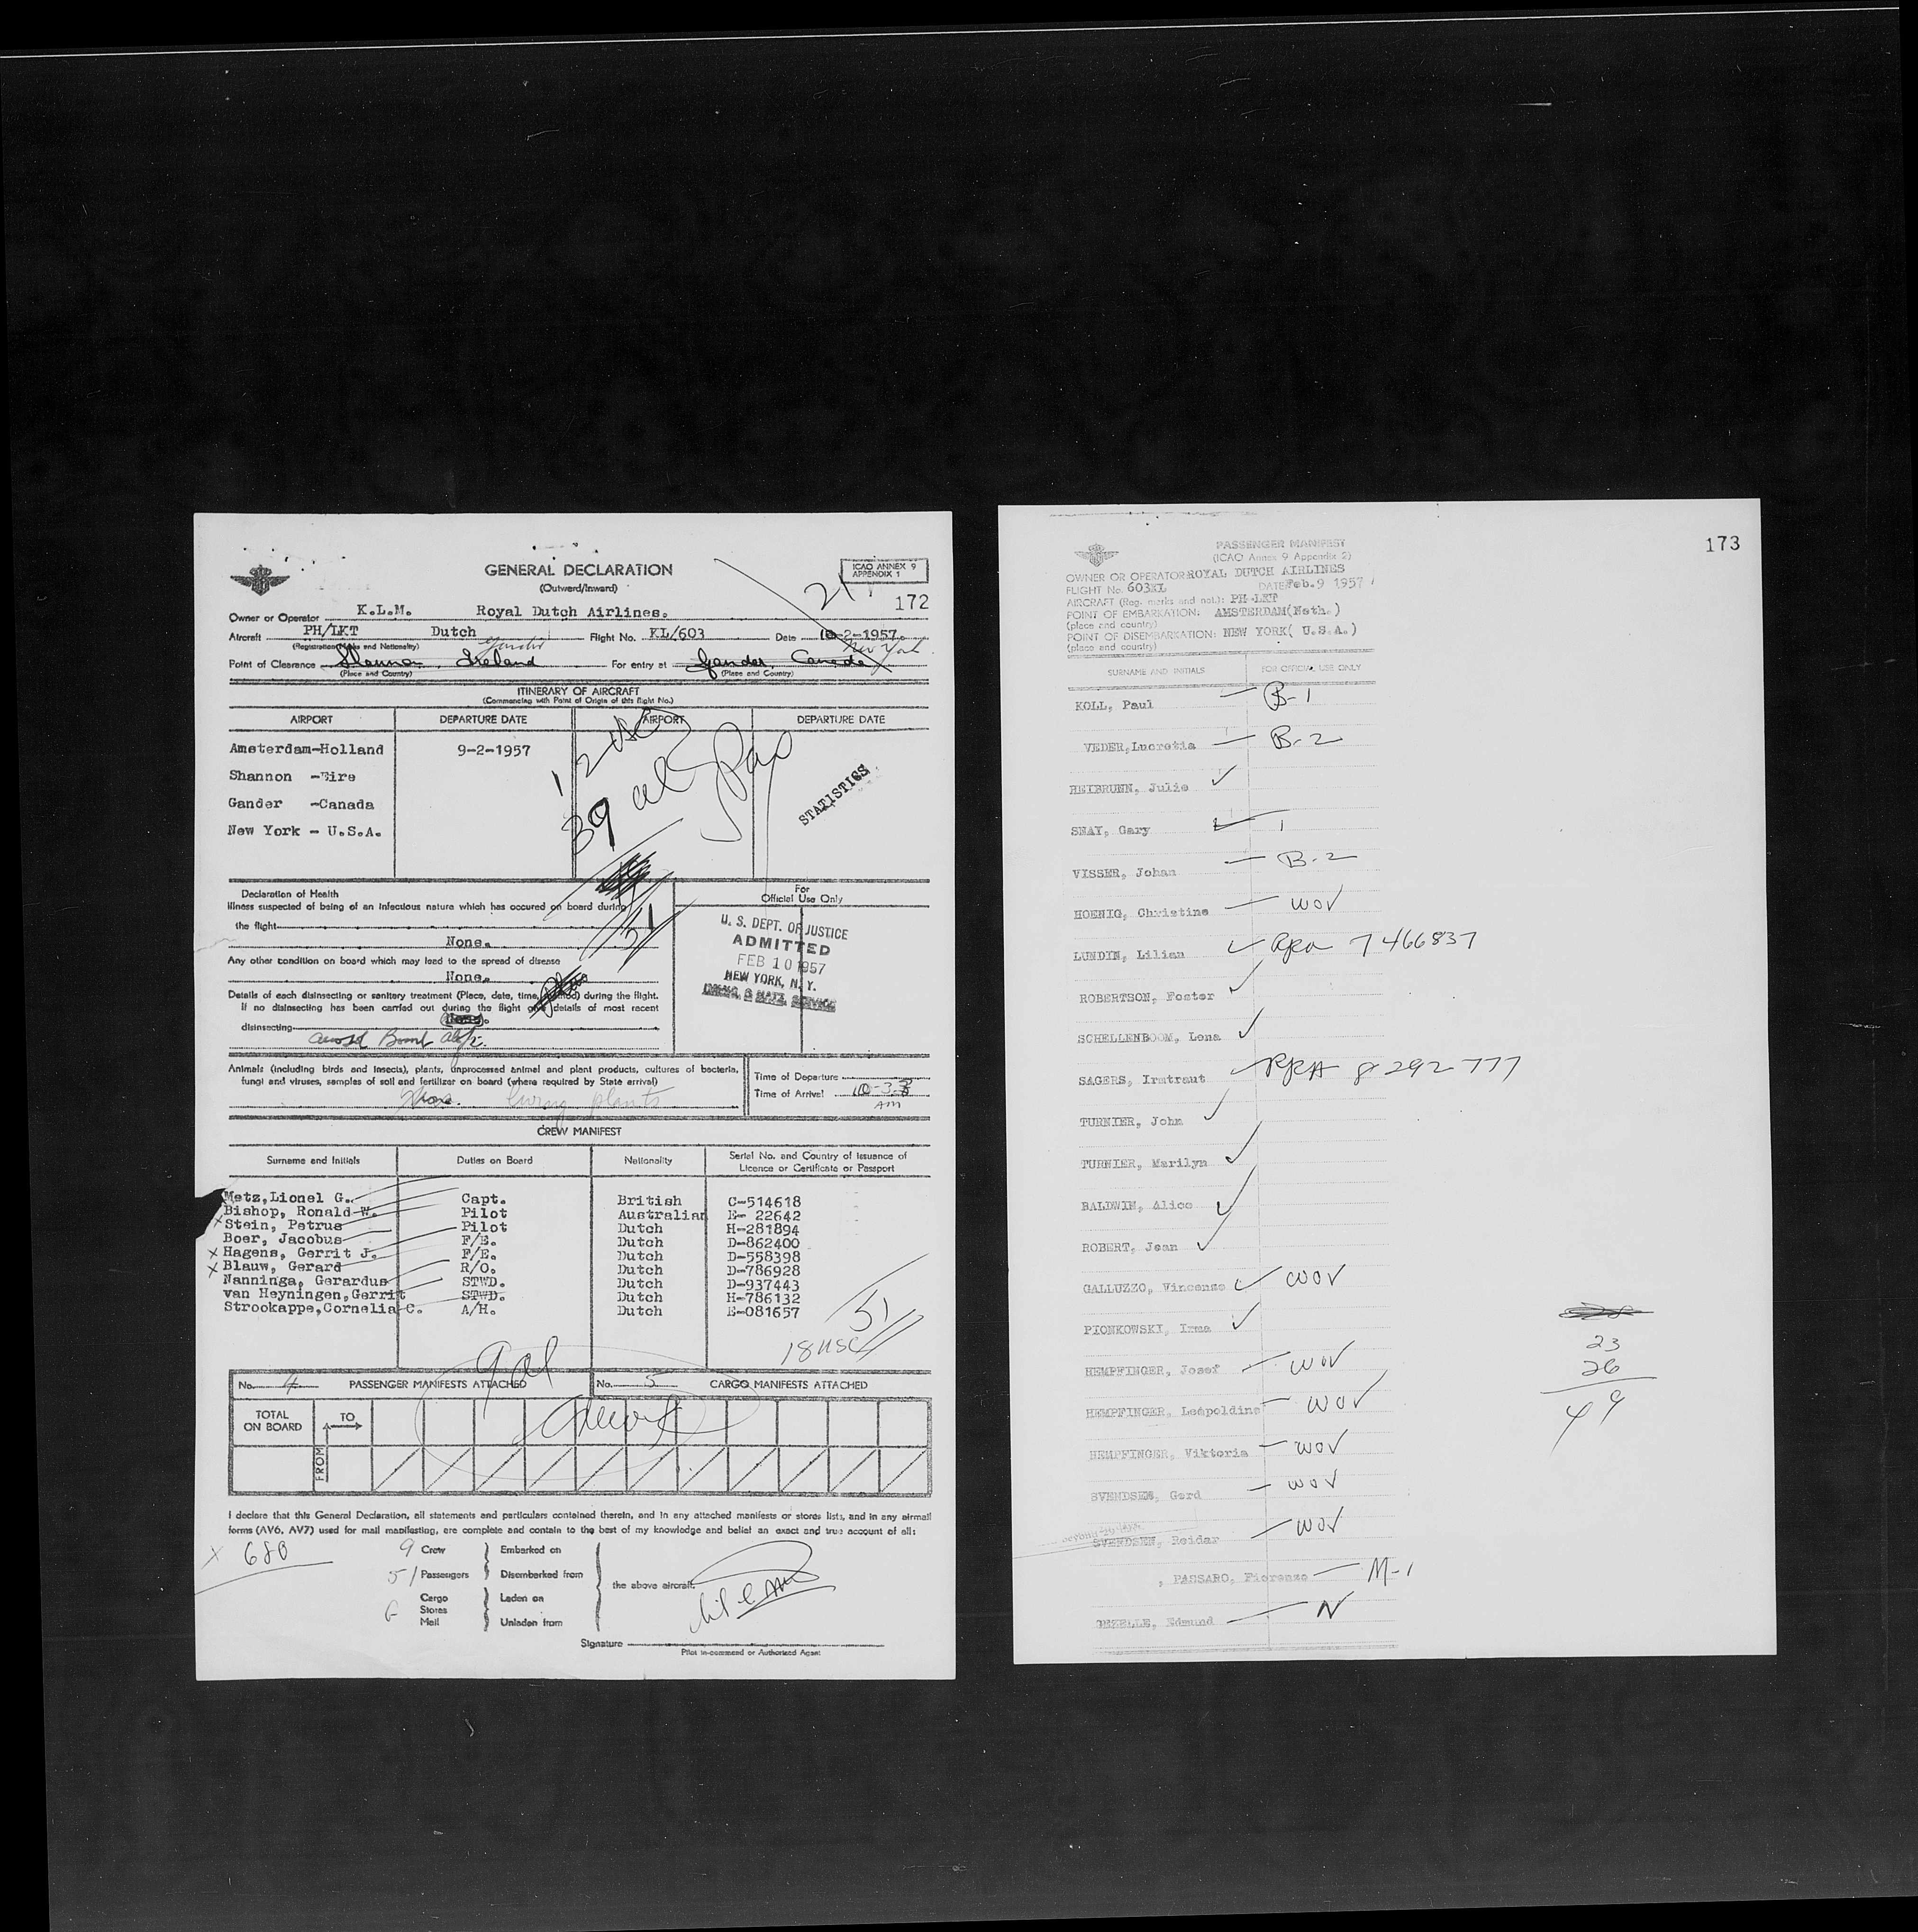 GENERAL DECLARATION
(Outward/Inward)
ICAO ANNEX 9
APPENDIX 1
21
172
Owner or Operator K.L.M. Royal Dutch Airlines.
Aircraft PH/LKT Dutch Flight No. KL/603 Date 10-2-1957.
(Registration Marks and Nationality) Gander New York
Point of Clearance Shannon, Ireland For entry at Gander, Canada
(Place and Country) (Place and Country)
ITINERARY OF AIRCRAFT
(Commencing with Point of Origin of this flight No.)
AIRPORT DEPARTURE DATE AIRPORT DEPARTURE DATE
Amsterdam-Holland 9-2-1957
Shannon -Eire
Gander -Canada
New York - U.S.A.
12 usc
39 al
Pax
STATISTICS
51
Declaration of Health
Illness suspected of being of an infectious nature which has occured on board during
the flight
None.
Any other condition on board which may lead to the spread of disease
None.
Details of each disinsecting or sanitary treatment (Place, date, time, method) during the flight.
If no disinsecting has been carried out during the flight give details of most recent
disinsecting
Bomb
For
Official Use Only
U. S. DEPT. OF JUSTICE
ADMITTED
FEB 10 1957
NEW YORK, N. Y.
IMMIG. & NATZ. SERVICE
Animals (including birds and insects), plants, unprocessed animal and plant products, cultures of bacteria,
fungi and viruses, samples of soil and fertilizer on board (where required by State arrival)
None. living plants
Time of Departure
Time of Arrival 10-33
AM
CREW MANIFEST
Surname and Initials Duties on Board Nationality Serial No. and Country of Issuance of
Licence or Certificate or Passport
Metz, Lionel G. Capt. British C-514618
Bishop, Ronald W. Pilot Australian E- 22642
Stein, Petrus Pilot Dutch H-281894
Boer, Jacobus F/E. Dutch D-862400
x Hagens, Gerrit J. F/E. Dutch D-558398
x Blauw, Gerard R/O. Dutch D-786928
Nanninga, Gerardus STWD. Dutch D-937443
van Heyningen, Gerrit STWD. Dutch H-786132
Strookappe, Cornelia C. A/H. Dutch E-081657
51
18 usc
9 al
crew
No. 4 PASSENGER MANIFESTS ATTACHED No. 5 CARGO MANIFESTS ATTACHED
TOTAL
ON BOARD
TO
FROM
I declare that this General Declaration, all statements and particulars contained therein, and in any attached manifests or stores lists, and in any airmail
forms (AV6, AV7) used for mail manifesting, are complete and contain to the best of my knowledge and belief an exact and true account of all:
x 680
9 Crew Embarked on
51 Passengers Disembarked from
the above aircraft.
Cargo Laden on
Stores
Mail Unladen from
Signature
Pilot in-command or Authorized Agent
173
PASSENGER MANIFEST
(ICAO Annex 9 Appendix 2)
OWNER OR OPERATOR ROYAL DUTCH AIRLINES
FLIGHT No. 603KL DATE Feb. 9 1957
AIRCRAFT (Reg. marks and nat.): PH-LKT
POINT OF EMBARKATION: AMSTERDAM(Neth.)
(place and country)
POINT OF DISEMBARKATION: NEW YORK( U.S.A.)
(place and country)
SURNAME AND INITIALS FOR OFFICIAL USE ONLY
KOLL, Paul B-1
VEDER, Lucretia B-2
HEIBRUNN, Julie
SNAY, Gary 1
VISSER, Johan B-2
HOENIG, Christine WOV
LUNDIN, Lilian 7 466837
ROBERTSON, Foster
SCHELLENBOOM, Lena
SAGERS, Irmtraut RRA 8 292 777
TURNIER, John
TURNIER, Marilyn
BALDWIN, Alice
ROBERT, Jean
GALLUZZO, Vincenzo WOV
PIONKOWSKI, Irma
HEMPFINGER, Josef WOV
HEMPFINGER, Leopoldine WOV
HEMPFINGER, Viktoria WOV
SVENDSEN, Gerd WOV
SVENDSEN, Reidar WOV
, PASSARO, Fiorenzo M-1
GEZELLE, Edmund N
23
26
49